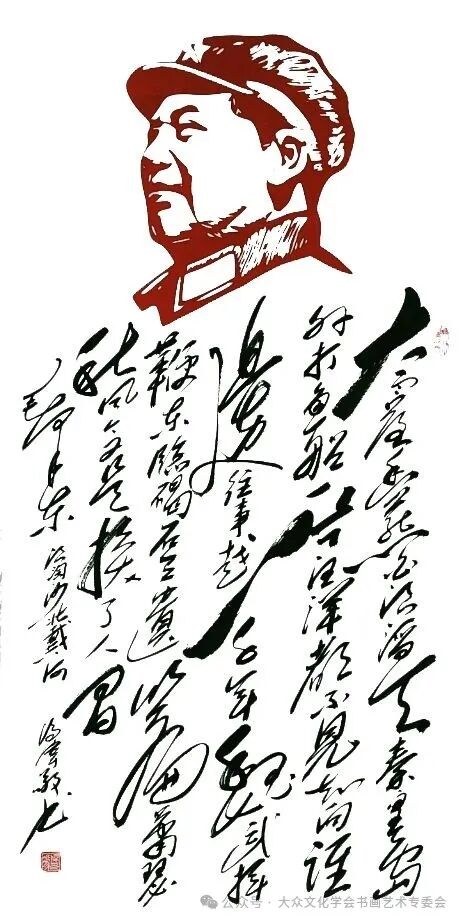 大雨落幽燕白浪滔天秦皇岛
外打鱼船一片汪洋都不见知向谁
边往事越千年魏武挥
鞭东临碣石有遗篇萧瑟
秋风今又是换了人间
毛泽东浪淘沙北戴河
敬书
公众号·大众文化学会书画艺术专委会